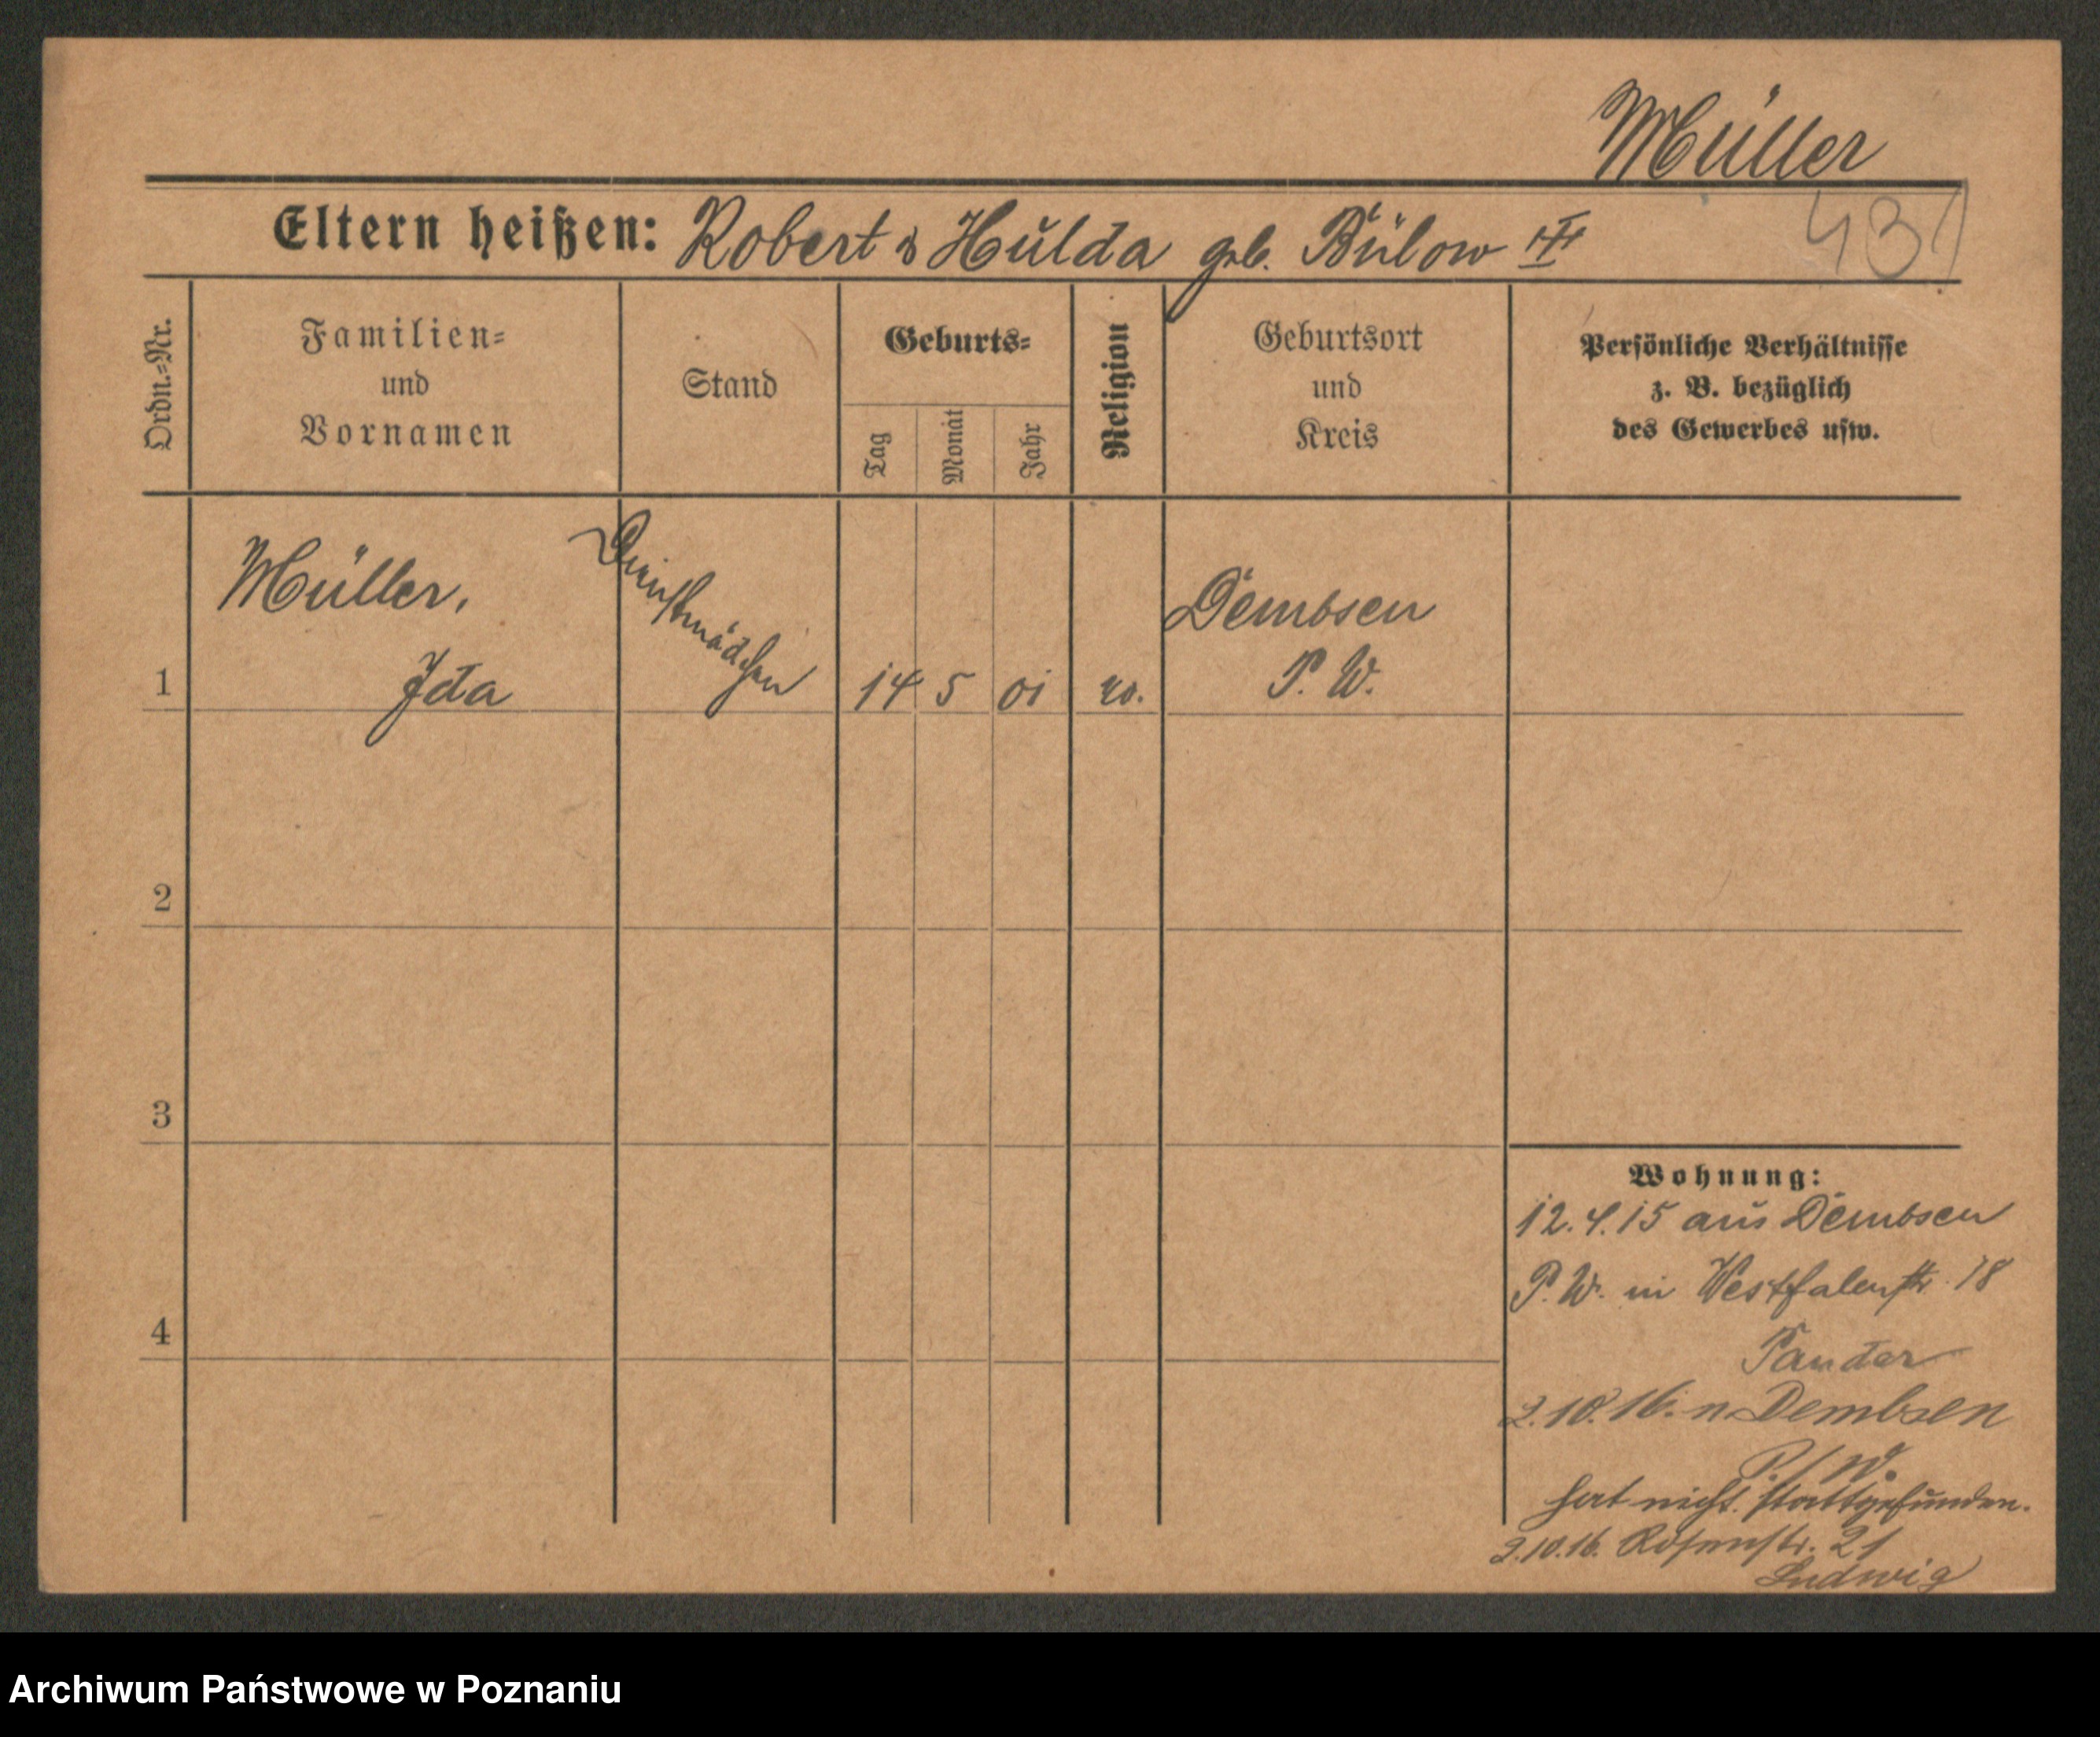 Müller
431
Eltern heißen: Robert & Hulda geb. Bülow
Ordn.-Nr.
Familien-
und
Vornamen
Stand
Geburts-
Tag
Monat
Jahr
Religion
Geburtsort
und
Kreis
Persönliche Verhältnisse
z. B. bezüglich
des Gewerbes usw.
1
Müller,
Ida
Dienstmädchen
14 5 01
Dembsen
P. W.
2
3
4
Wohnung:
12.4.15 aus Dembsen
P. W. in Westfalenstr. 18
2.10.16. n Dembsen
P/W.
hat nicht stattgefunden.
2.10.16. Rosenstr. 21
Ludwig
Archiwum Państwowe w Poznaniu